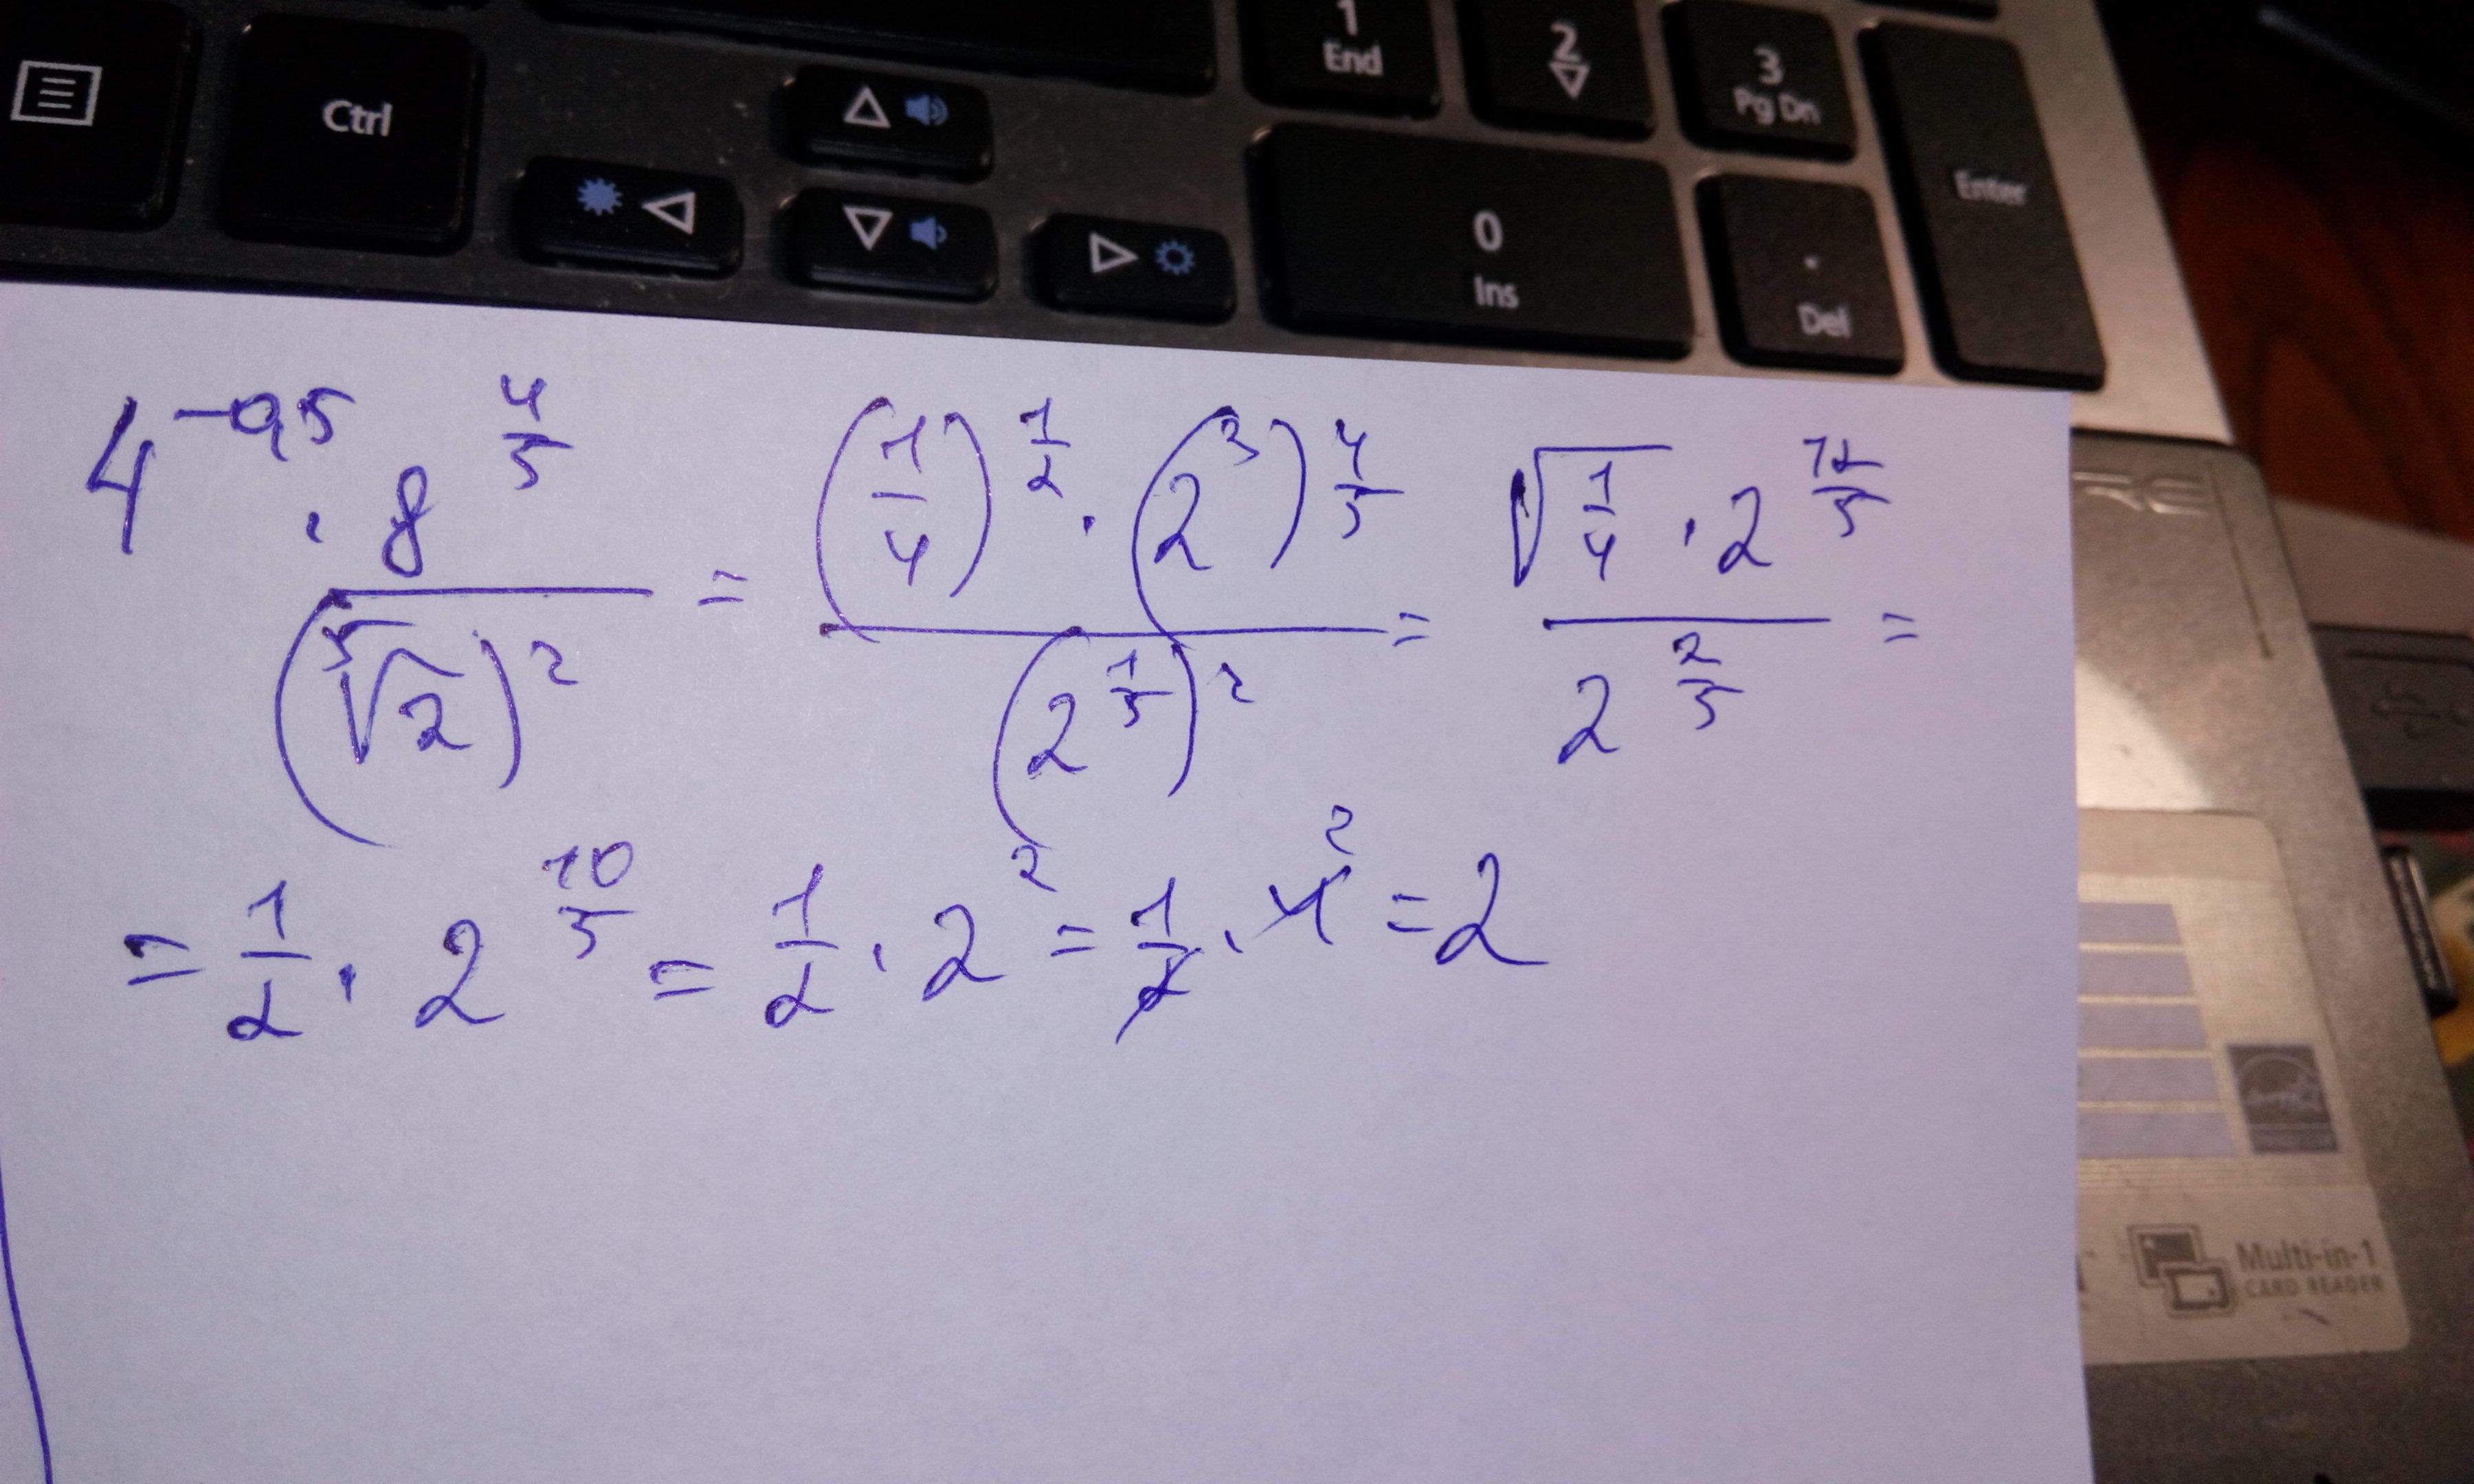 Ctrl
1 End
2
3 Pg Dn
0 Ins
. Del
Enter
4^{-0,5} · 8^{4/5} / (⁵√2)² = (1/4)^{1/2} · (2³)^{4/5} / (2^{1/5})² = √(1/4) · 2^{12/5} / 2^{2/5} =
= 1/2 · 2^{10/5} = 1/2 · 2² = 1/2 · 4 ² = 2
Multi-in-1
CARD READER